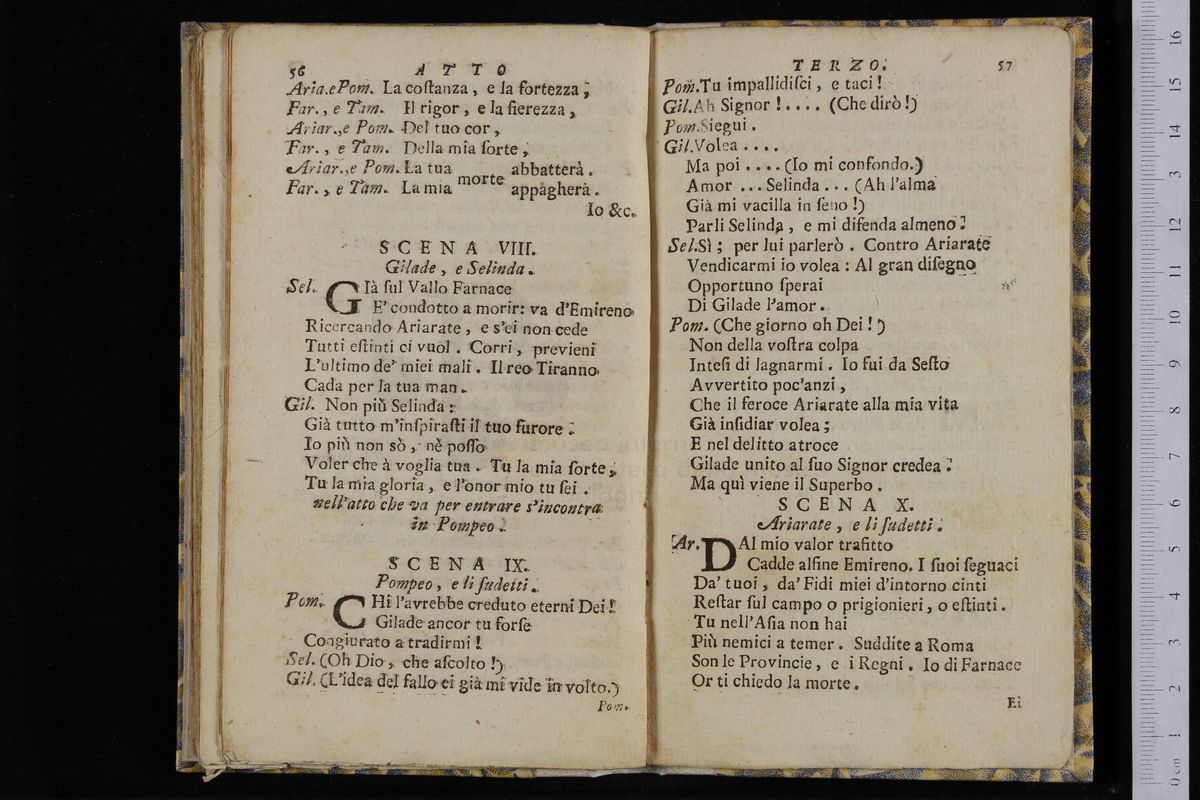 56 ATTO
Aria.e Pom. La coſtanza, e la fortezza;
Far., e Tam. Il rigor, e la fierezza,
Ariar.,e Pom. Del tuo cor,
Far., e Tam. Della mia ſorte,
Ariar.,e Pom. La tua morte abbatterà.
Far., e Tam. La mia morte appagherà.
Io &c.
SCENA VIII.
Gilade, e Selinda.
Sel. GIà ſul Vallo Farnace
E' condotto a morir: va d'Emireno
Ricercando Ariarate, e s'ei non cede
Tutti eſtinti ci vuol. Corri, previeni
L'ultimo de' miei mali. Il reo Tiranno
Cada per la tua man.
Gil. Non più Selinda:
Già tutto m'inſpiraſti il tuo furore:
Io più non sò, nè poſſo
Voler che à voglia tua. Tu la mia ſorte,
Tu la mia gloria, e l'onor mio tu ſei.
nell'atto che va per entrare s'incontra
in Pompeo.
SCENA IX.
Pompeo, e li ſudetti.
Pom. CHi l'avrebbe creduto eterni Dei!
Gilade ancor tu forſe
Congiurato a tradirmi!
Sel. (Oh Dio, che aſcolto!)
Gil. (L'idea del fallo ei già mi vide in volto.)
Pom.
TERZO. 57
Pom. Tu impallidiſci, e taci!
Gil. Ah Signor!.... (Che dirò!)
Pom. Siegui.
Gil. Volea....
Ma poi.... (Io mi confondo.)
Amor... Selinda... (Ah l'alma
Già mi vacilla in ſeno!)
Parli Selinda, e mi difenda almeno.
Sel. Sì; per lui parlerò. Contro Ariarate
Vendicarmi io volea: Al gran diſegno
Opportuno ſperai
Di Gilade l'amor.
Pom. (Che giorno oh Dei!)
Non della voſtra colpa
Inteſi di lagnarmi. Io fui da Seſto
Avvertito poc'anzi,
Che il feroce Ariarate alla mia vita
Già inſidiar volea;
E nel delitto atroce
Gilade unito al ſuo Signor credea.
Ma quì viene il Superbo.
SCENA X.
Ariarate, e li ſudetti.
Ar. DAl mio valor trafitto
Cadde alfine Emireno. I ſuoi ſeguaci
Da' tuoi, da' Fidi miei d'intorno cinti
Reſtar ſul campo o prigionieri, o eſtinti.
Tu nell'Aſia non hai
Più nemici a temer. Suddite a Roma
Son le Provincie, e i Regni. Io di Farnace
Or ti chiedo la morte.
Ei
0 cm 1 2 3 4 5 6 7 8 9 10 11 12 13 14 15 16